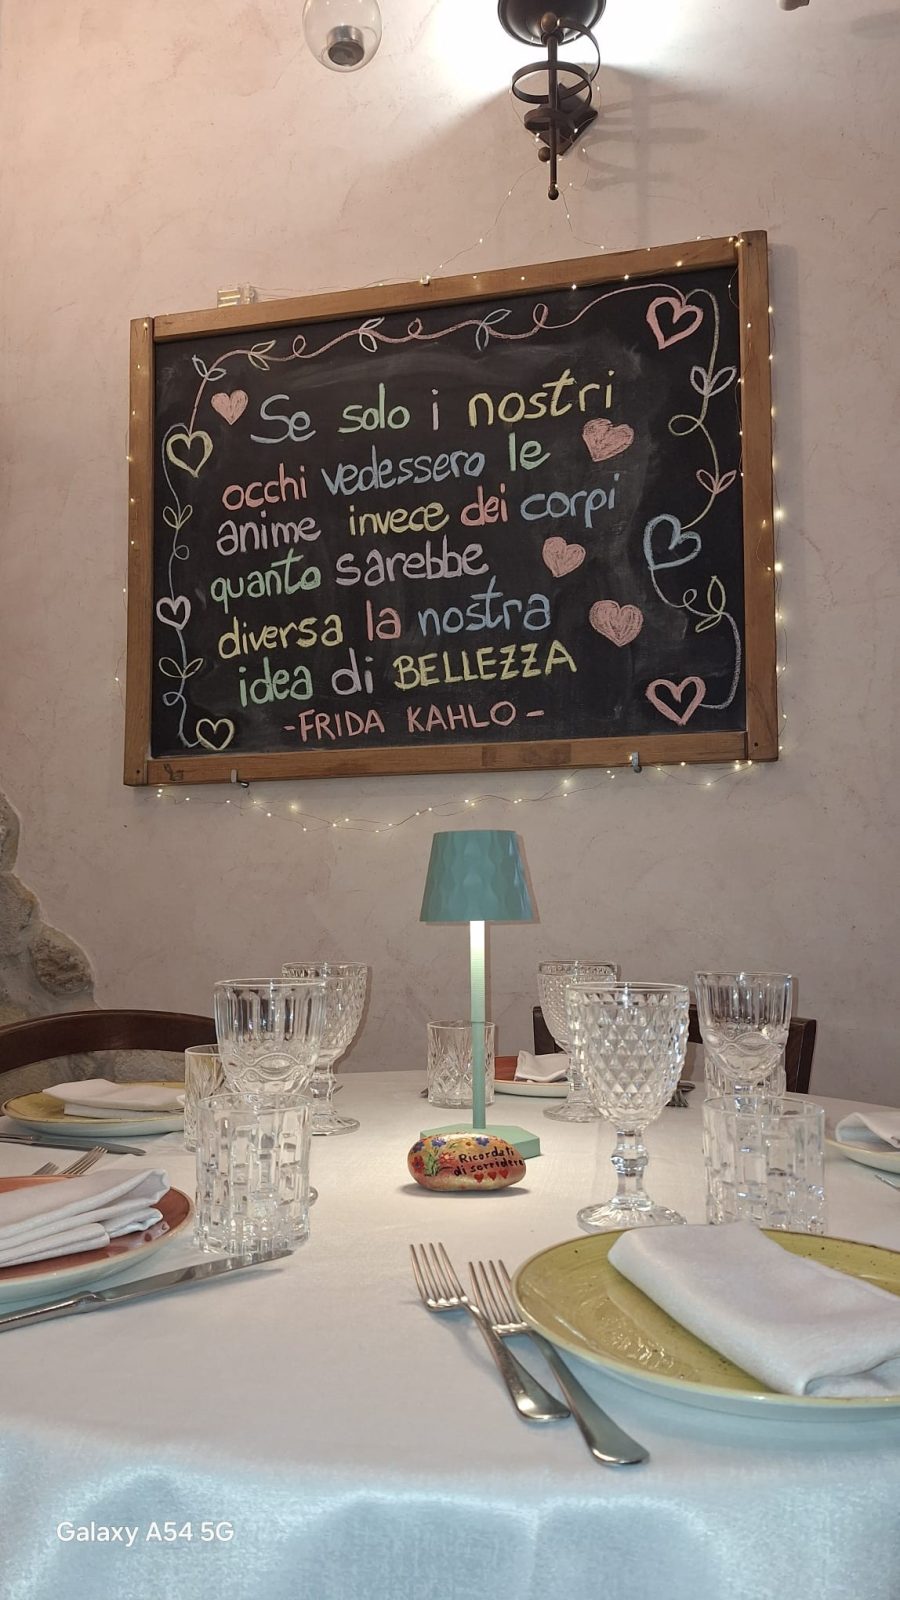 Se solo i nostri
occhi vedessero le
anime invece dei corpi
quanto sarebbe
diversa la nostra
idea di BELLEZZA
-FRIDA KAHLO-
Ricordati
di sorridere
Galaxy A54 5G